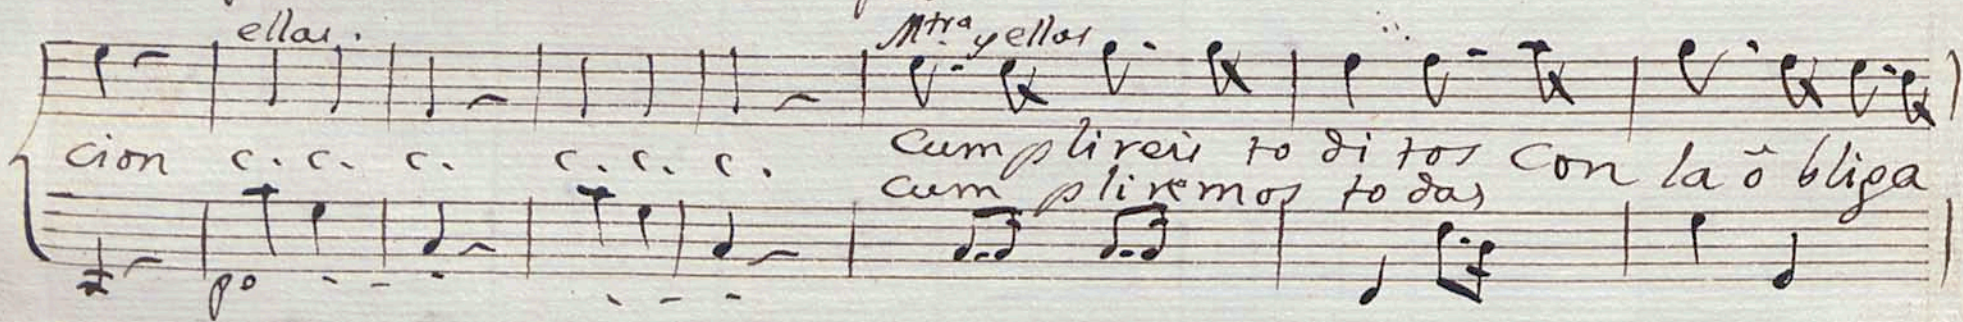 ellas. Mtra y ellas
cion c. c. c. c. c. c. Cumplireis to di tos Con la ô bliga
cum pliremos to das
po